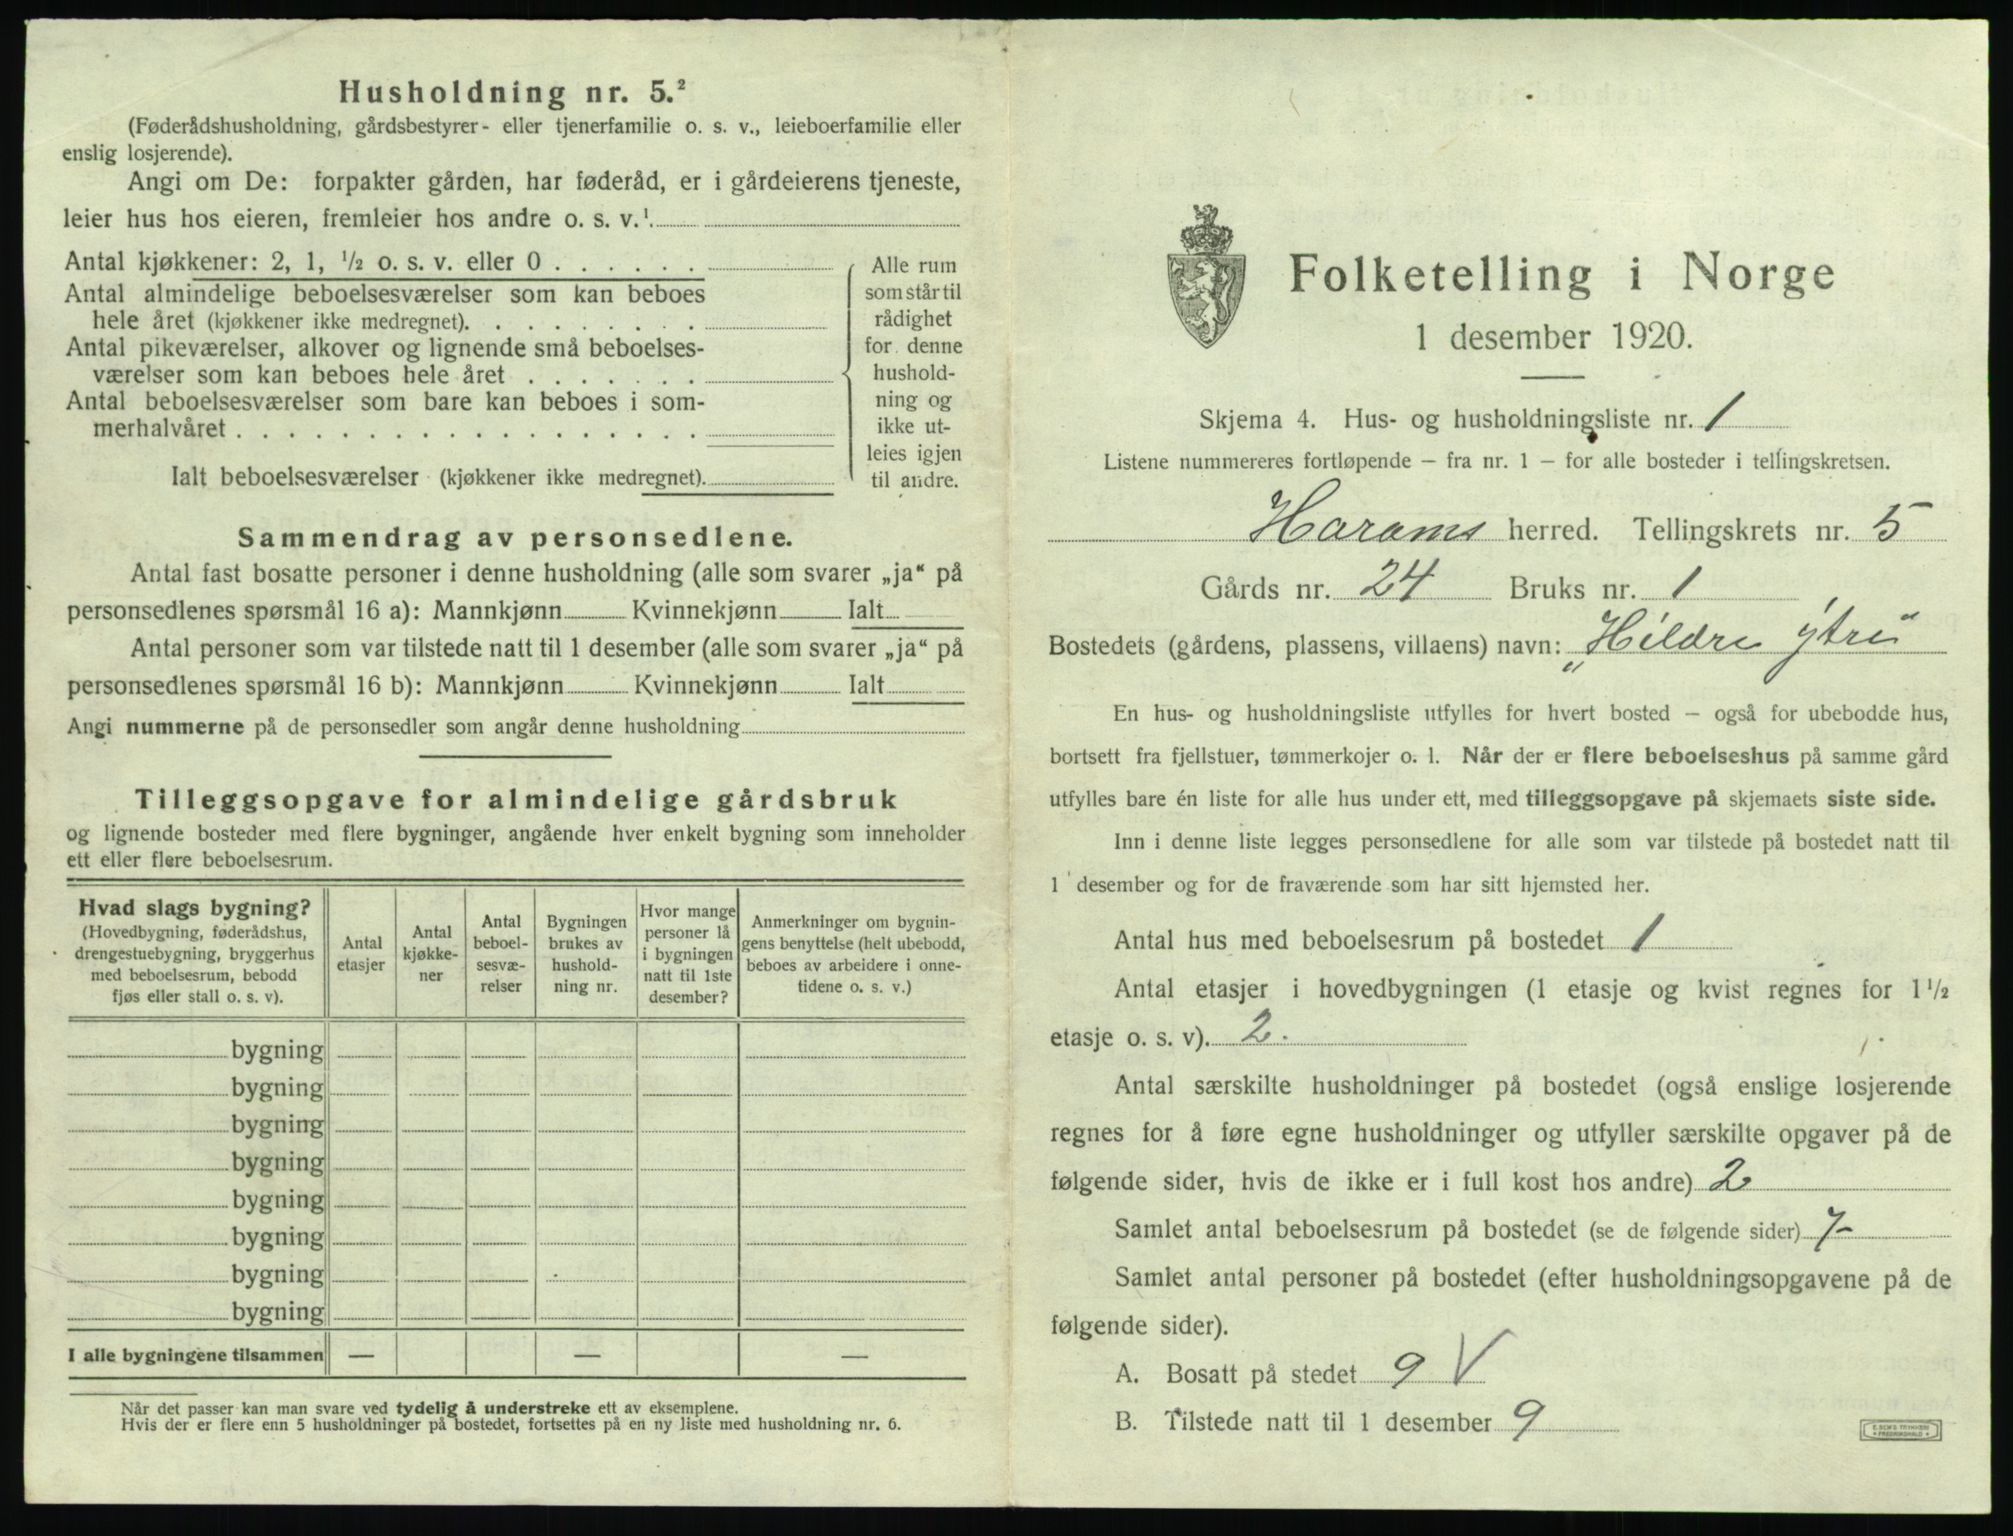 Husholdning nr. 5.²
(Føderådshusholdning, gårdsbestyrer- eller tjenerfamilie o. s. v., leieboerfamilie eller
enslig losjerende).
Angi om De: forpakter gården, har føderåd, er i gårdeierens tjeneste,
leier hus hos eieren, fremleier hos andre o. s. v.¹
Antal kjøkkener: 2, 1, ½ o. s. v. eller 0
Antal almindelige beboelsesværelser som kan beboes
hele året (kjøkkener ikke medregnet).
Antal pikeværelser, alkover og lignende små beboelses-
værelser som kan beboes hele året
Antal beboelsesværelser som bare kan beboes i som-
merhalvåret
Ialt beboelsesværelser (kjøkkener ikke medregnet).
Alle rum
som står til
rådighet
for denne
hushold-
ning og
ikke ut-
leies igjen
til andre.
Sammendrag av personsedlene.
Antal fast bosatte personer i denne husholdning (alle som svarer „ja“ på
personsedlenes spørsmål 16 a): Mannkjønn Kvinnekjønn Ialt
Antal personer som var tilstede natt til 1 desember (alle som svarer „ja“ på
personsedlenes spørsmål 16 b): Mannkjønn Kvinnekjønn Ialt
Angi nummerne på de personsedler som angår denne husholdning
Tilleggsopgave for almindelige gårdsbruk
og lignende bosteder med flere bygninger, angående hver enkelt bygning som inneholder
ett eller flere beboelsesrum.
Hvad slags bygning?
(Hovedbygning, føderådshus,
drengestuebygning, bryggerhus
med beboelsesrum, bebodd
fjøs eller stall o. s. v).
Antal
etasjer
Antal
kjøkke-
ner
Antal
beboel-
sesvæ-
relser
Bygningen
brukes av
hushold-
ning nr.
Hvor mange
personer lå
i bygningen
natt til 1ste
desember?
Anmerkninger om bygnin-
gens benyttelse (helt ubebodd,
beboes av arbeidere i onne-
tidene o. s. v.)
bygning
bygning
bygning
bygning
bygning
bygning
bygning
bygning
I alle bygningene tilsammen — — —
Når det passer kan man svare ved tydelig å understreke ett av eksemplene.
Hvis der er flere enn 5 husholdninger på bostedet, fortsettes på en ny liste med husholdning nr. 6.
Folketelling i Norge
1 desember 1920.
Skjema 4. Hus- og husholdningsliste nr. 1
Listene nummereres fortløpende — fra nr. 1 — for alle bosteder i tellingskretsen.
Harams herred. Tellingskrets nr. 5
Gårds nr. 24 Bruks nr. 1
Bostedets (gårdens, plassens, villaens) navn: „Hildre ytre“
En hus- og husholdningsliste utfylles for hvert bosted — også for ubebodde hus,
bortsett fra fjellstuer, tømmerkojer o. l. Når der er flere beboelseshus på samme gård
utfylles bare én liste for alle hus under ett, med tilleggsopgave på skjemaets siste side.
Inn i denne liste legges personsedlene for alle som var tilstede på bostedet natt til
1 desember og for de fraværende som har sitt hjemsted her.
Antal hus med beboelsesrum på bostedet 1
Antal etasjer i hovedbygningen (1 etasje og kvist regnes for 1½
etasje o. s. v). 2.
Antal særskilte husholdninger på bostedet (også enslige losjerende
regnes for å føre egne husholdninger og utfyller særskilte opgaver på de
følgende sider, hvis de ikke er i full kost hos andre) 2
Samlet antal beboelsesrum på bostedet (se de følgende sider) 7-
Samlet antal personer på bostedet (efter husholdningsopgavene på de
følgende sider).
A. Bosatt på stedet 9 V
B. Tilstede natt til 1 desember 9